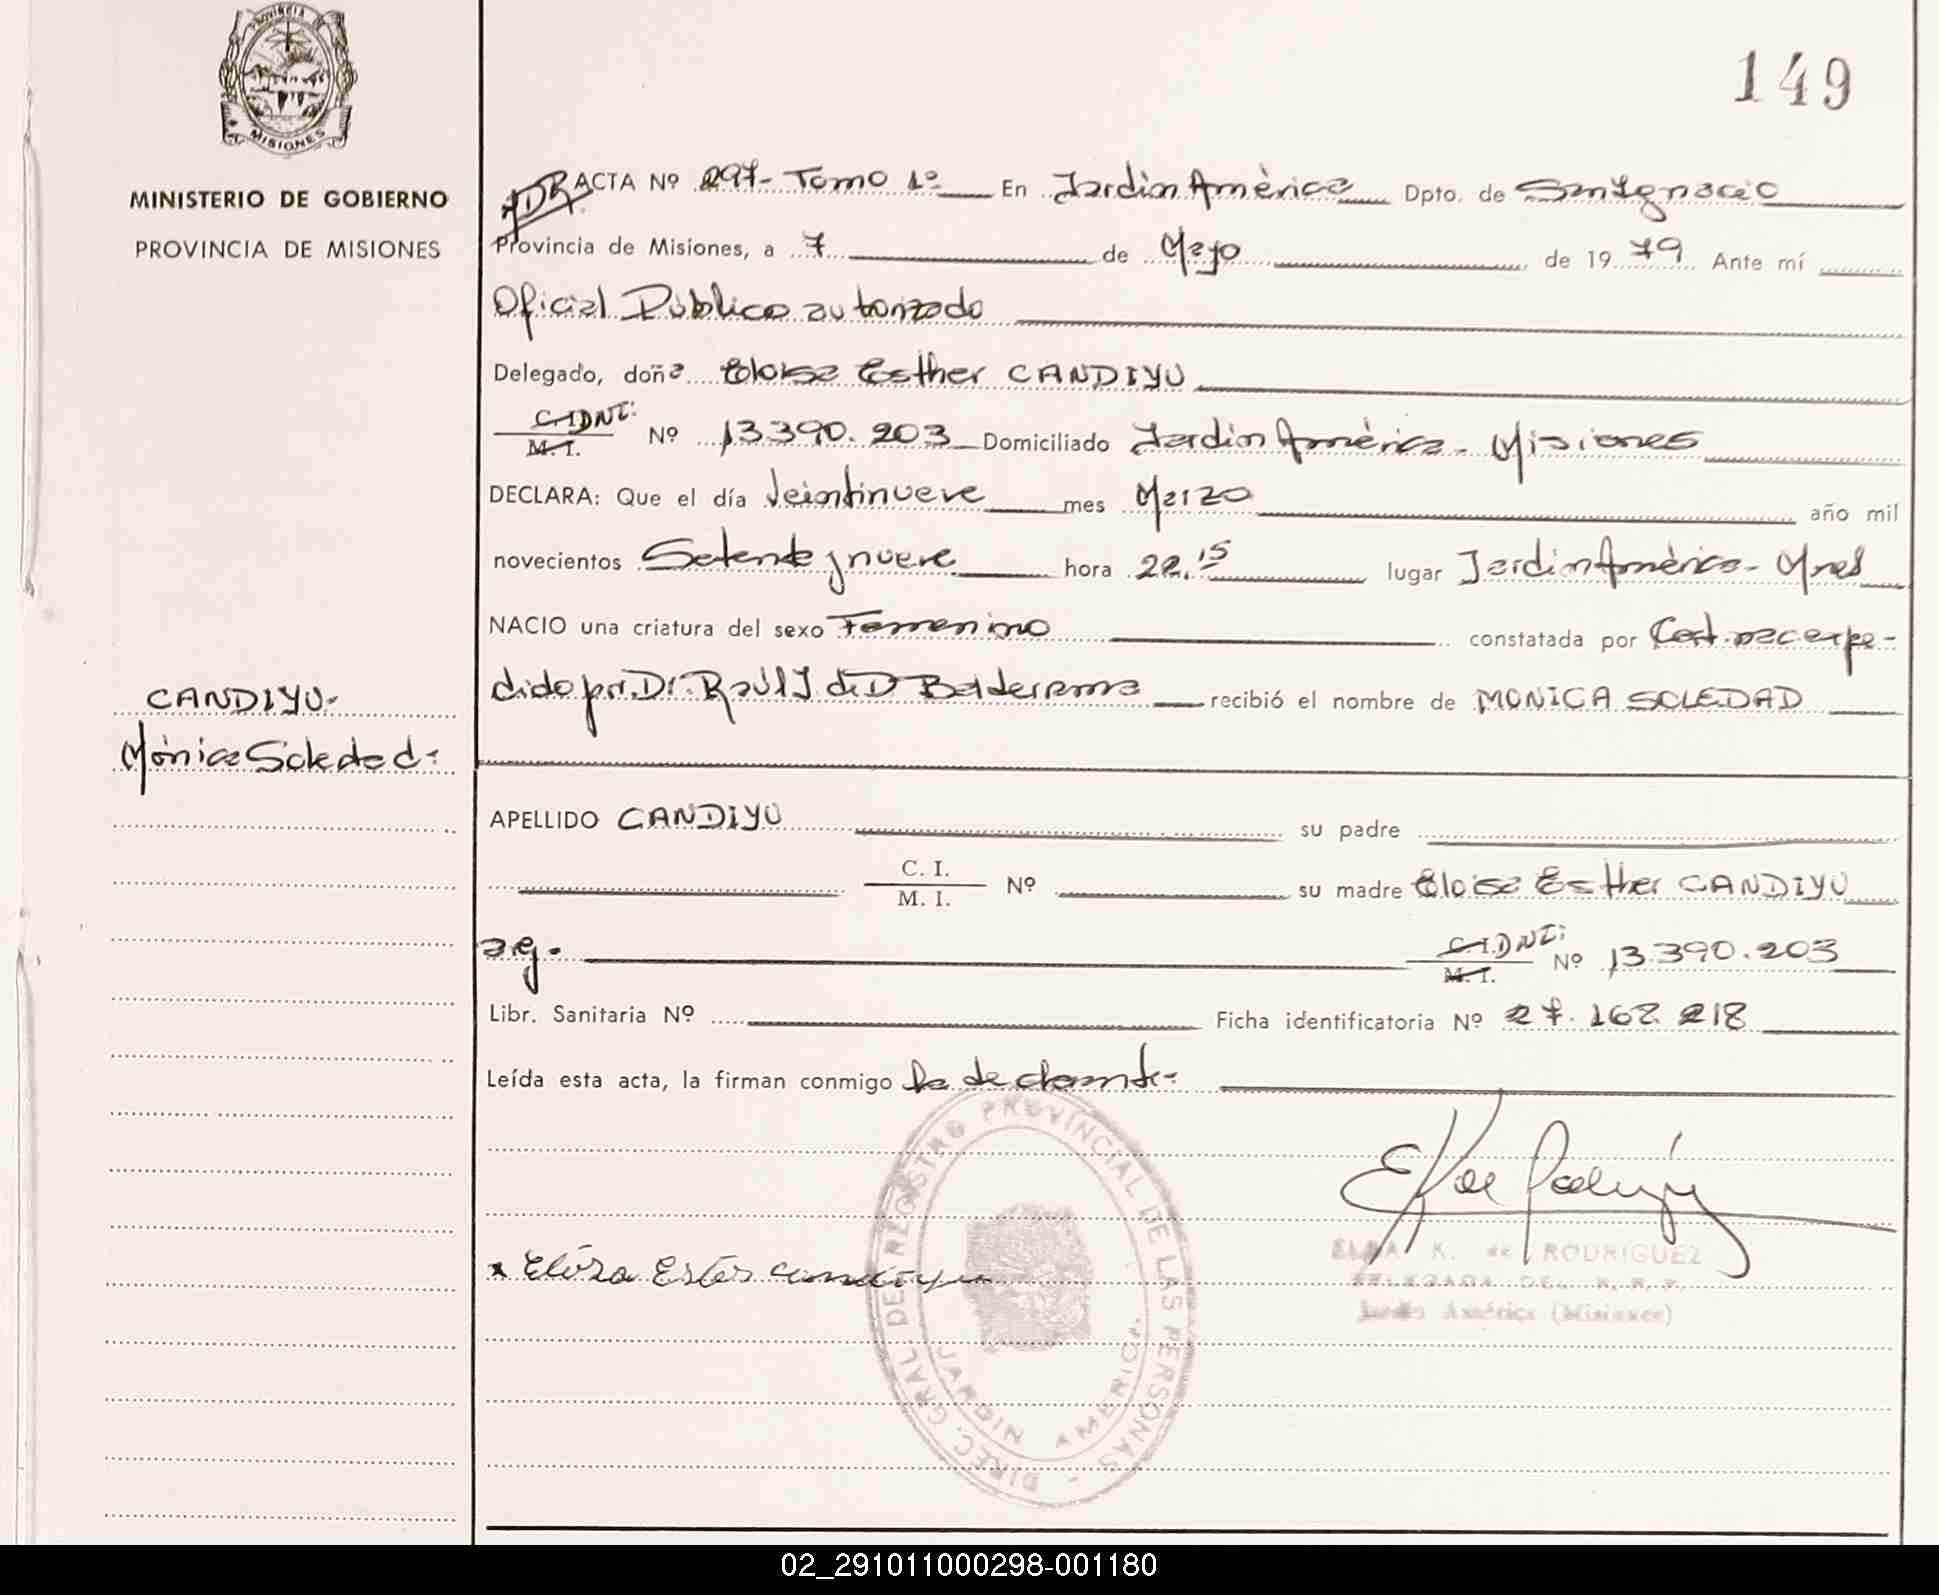 PROVINCIA
MISIONES
MINISTERIO DE GOBIERNO
PROVINCIA DE MISIONES
CANDIYU.
Mónica Soledad.
149
ACTA Nº 297- Tomo 1º En Jardin América Dpto. de San Ignacio
Provincia de Misiones, a 7 de Mayo de 1979 Ante mí
Oficial Público autorizado
Delegado, doña Eloisa Esther CANDIYU
C.I.DNI: M.I. Nº 13.390.203 Domiciliado Jardin América - Misiones
DECLARA: Que el día Veintinueve mes Marzo año mil
novecientos Setenta y nueve hora 22,15 lugar Jardin América - Mnes
NACIO una criatura del sexo Femenino constatada por Cert. nac. expe-
dido por Dr. Raúl J. de D Balderrama recibió el nombre de MONICA SOLEDAD
APELLIDO CANDIYU su padre
C. I. M. I. Nº su madre Eloisa Esther CANDIYU
arg. C.I.DNI: M.I. Nº 13.390.203
Libr. Sanitaria Nº Ficha identificatoria Nº 27.162.218
Leída esta acta, la firman conmigo la declarante-
ELBA K. de RODRIGUEZ
DELEGADA DEL R. R. P.
Jardín América (Misiones)
DIREC. GRAL DE REGISTRO PROVINCIAL DE LAS PERSONAS -
JARDIN AMERICA
02_291011000298-001180